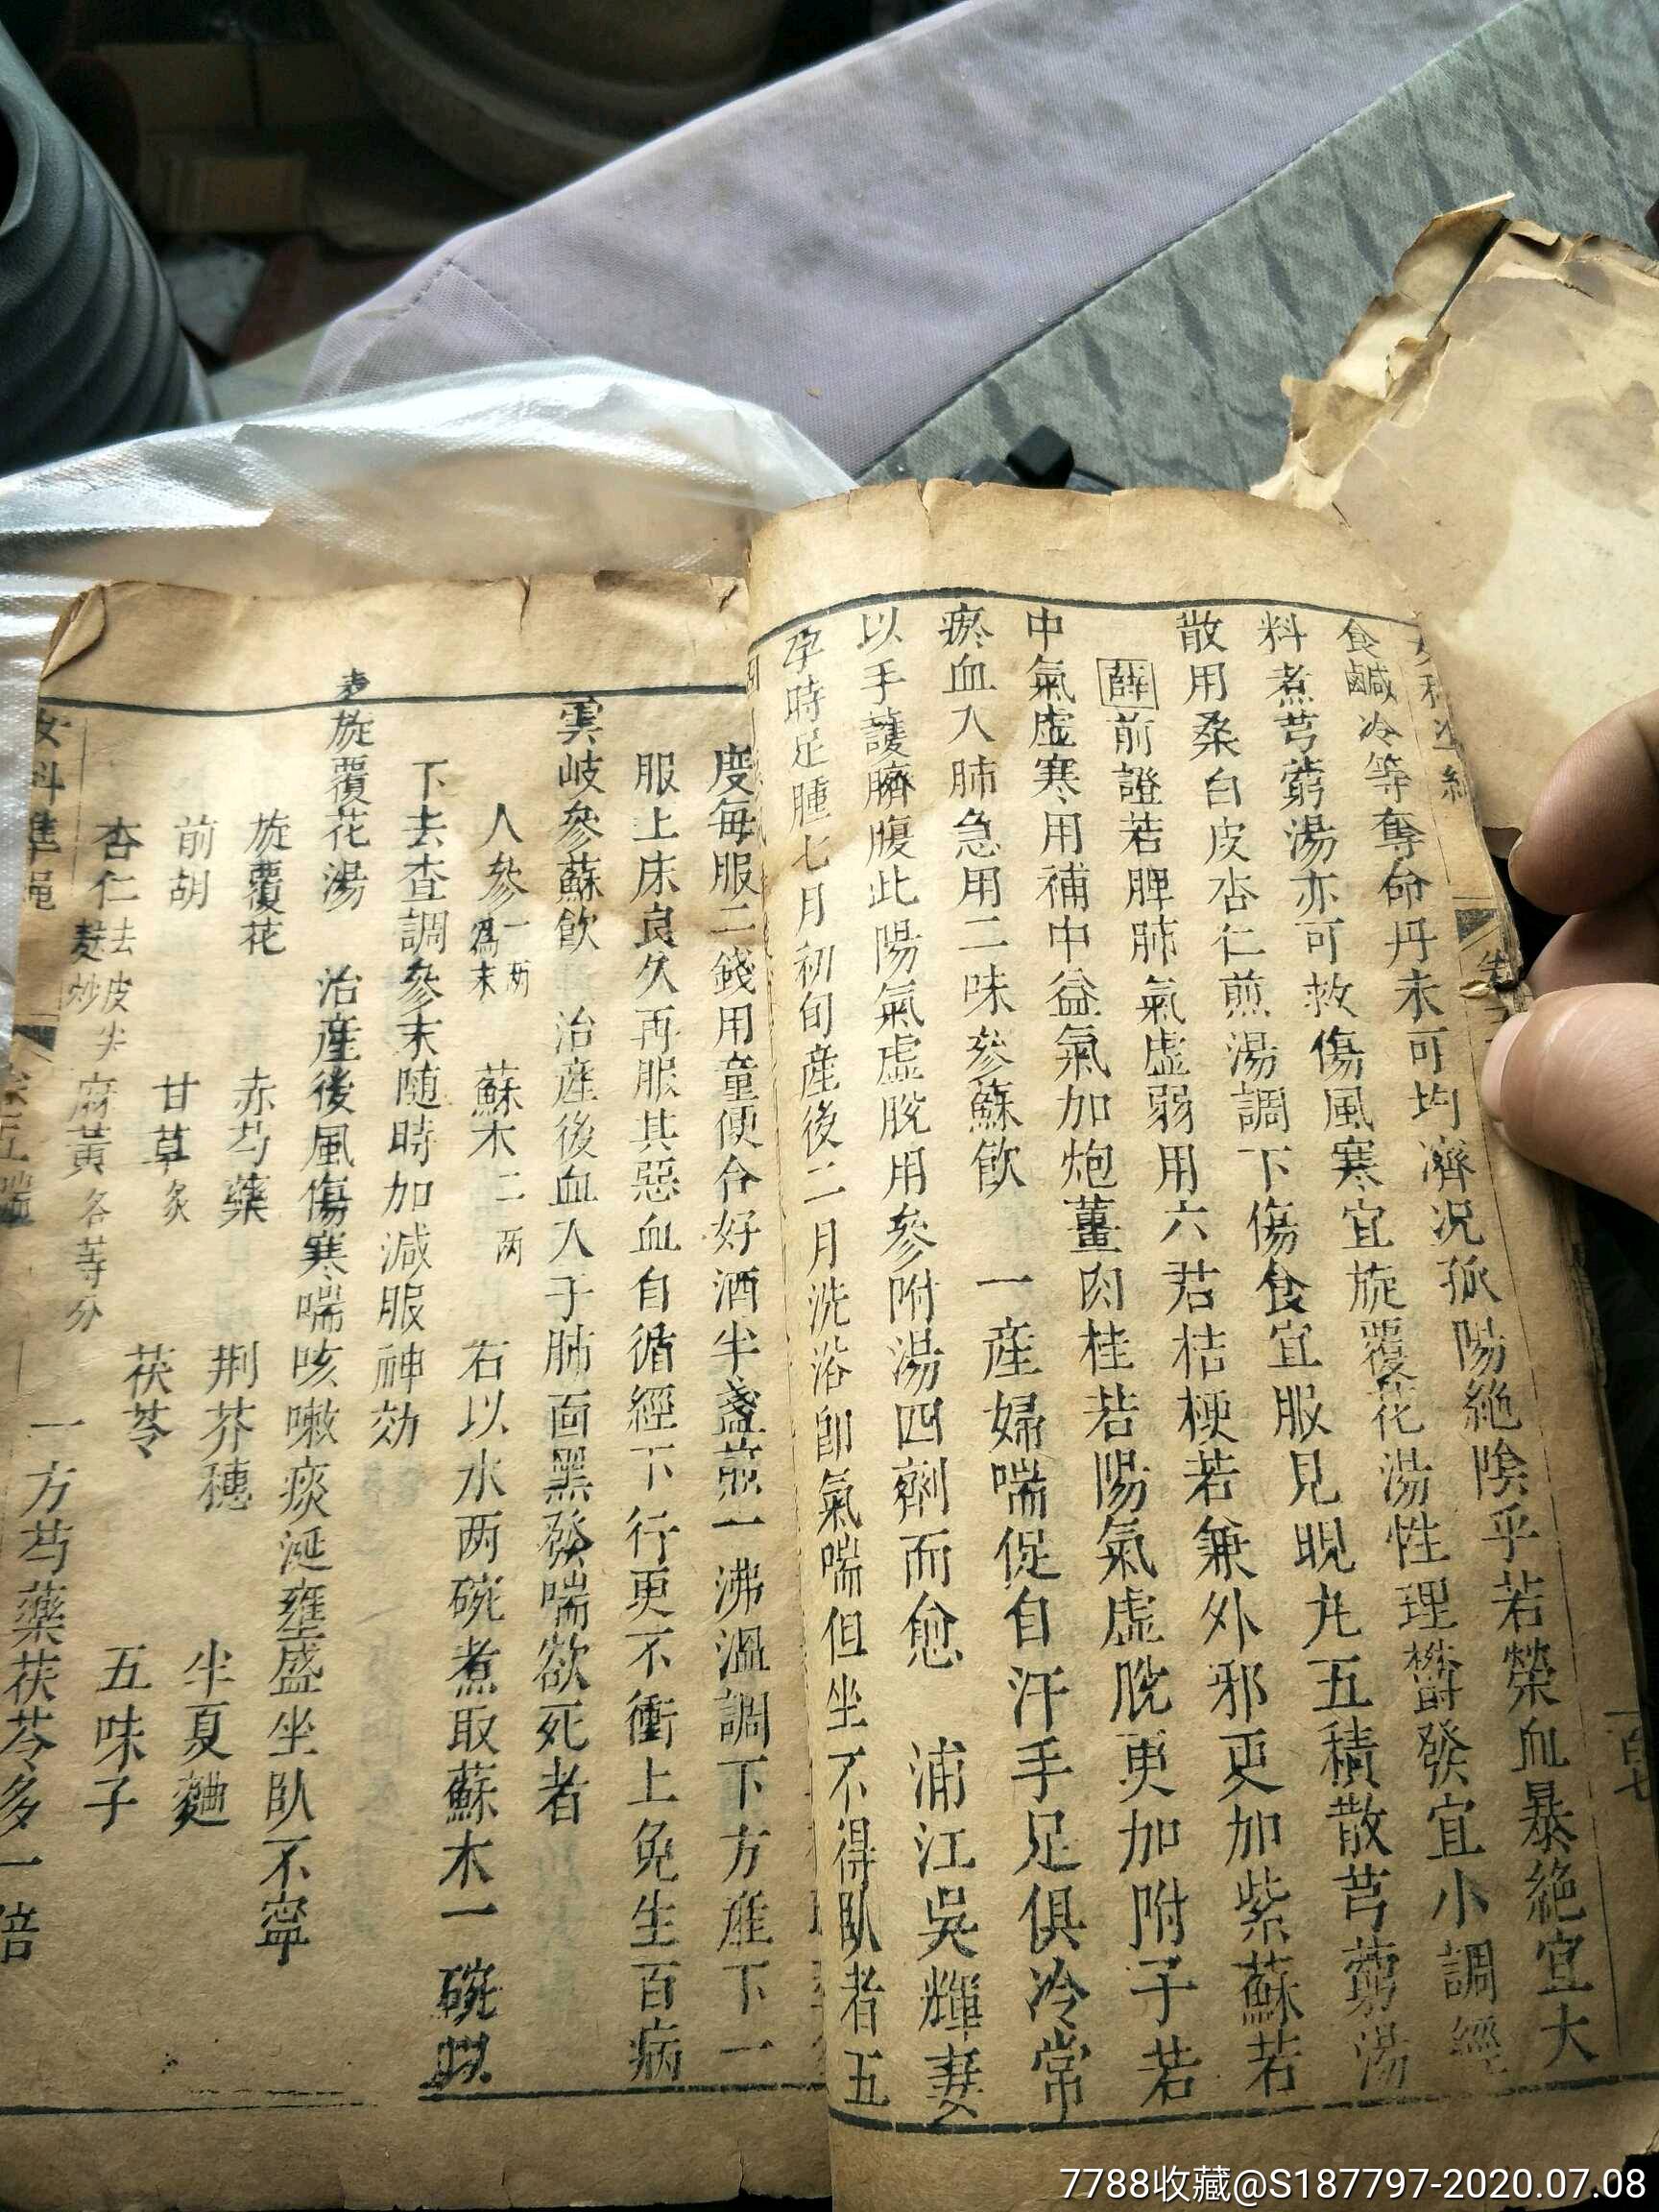 食鹹冷等奪命丹未可均濟況孤陽絶隂乎若榮血暴絶宜大
料煮芎藭湯亦可救傷風寒宜旋覆花湯性理欝發宜小調經
散用桑白皮杏仁煎湯調下傷食宜服見晛丸五積散芎藭湯
薛前證若脾肺氣虛弱用六君桔梗若兼外邪更加紫蘇若
中氣虛寒用補中益氣加炮薑肉桂若陽氣虛脫更加附子若
瘀血入肺急用二味參蘇飲 一產婦喘促自汗手足俱冷常
以手護臍腹此陽氣虛脫用參附湯四劑而愈 浦江吳輝妻
孕時足腫七月初旬產後二月洗浴即氣喘但坐不得臥者五
度每服二錢用童便合好酒半盞煎一沸溫調下方産下一
服上床良久再服其惡血自循經下行更不衝上免生百病
雲岐參蘇飲 治產後血入于肺面黑發喘欲死者
人參一两為末 蘇木二两 右以水两碗煮取蘇木一碗以
下去查調參末随時加減服神効
表旋覆花湯 治產後風傷寒喘咳嗽痰涎壅盛坐臥不寧
旋覆花 赤芍藥 荆芥穗 半夏麯
前胡 甘草炙 茯苓 五味子
杏仁去皮尖麩炒 麻黃各等分
一方芍藥茯苓多一倍
女科準繩
7788收藏@S187797-2020.07.08